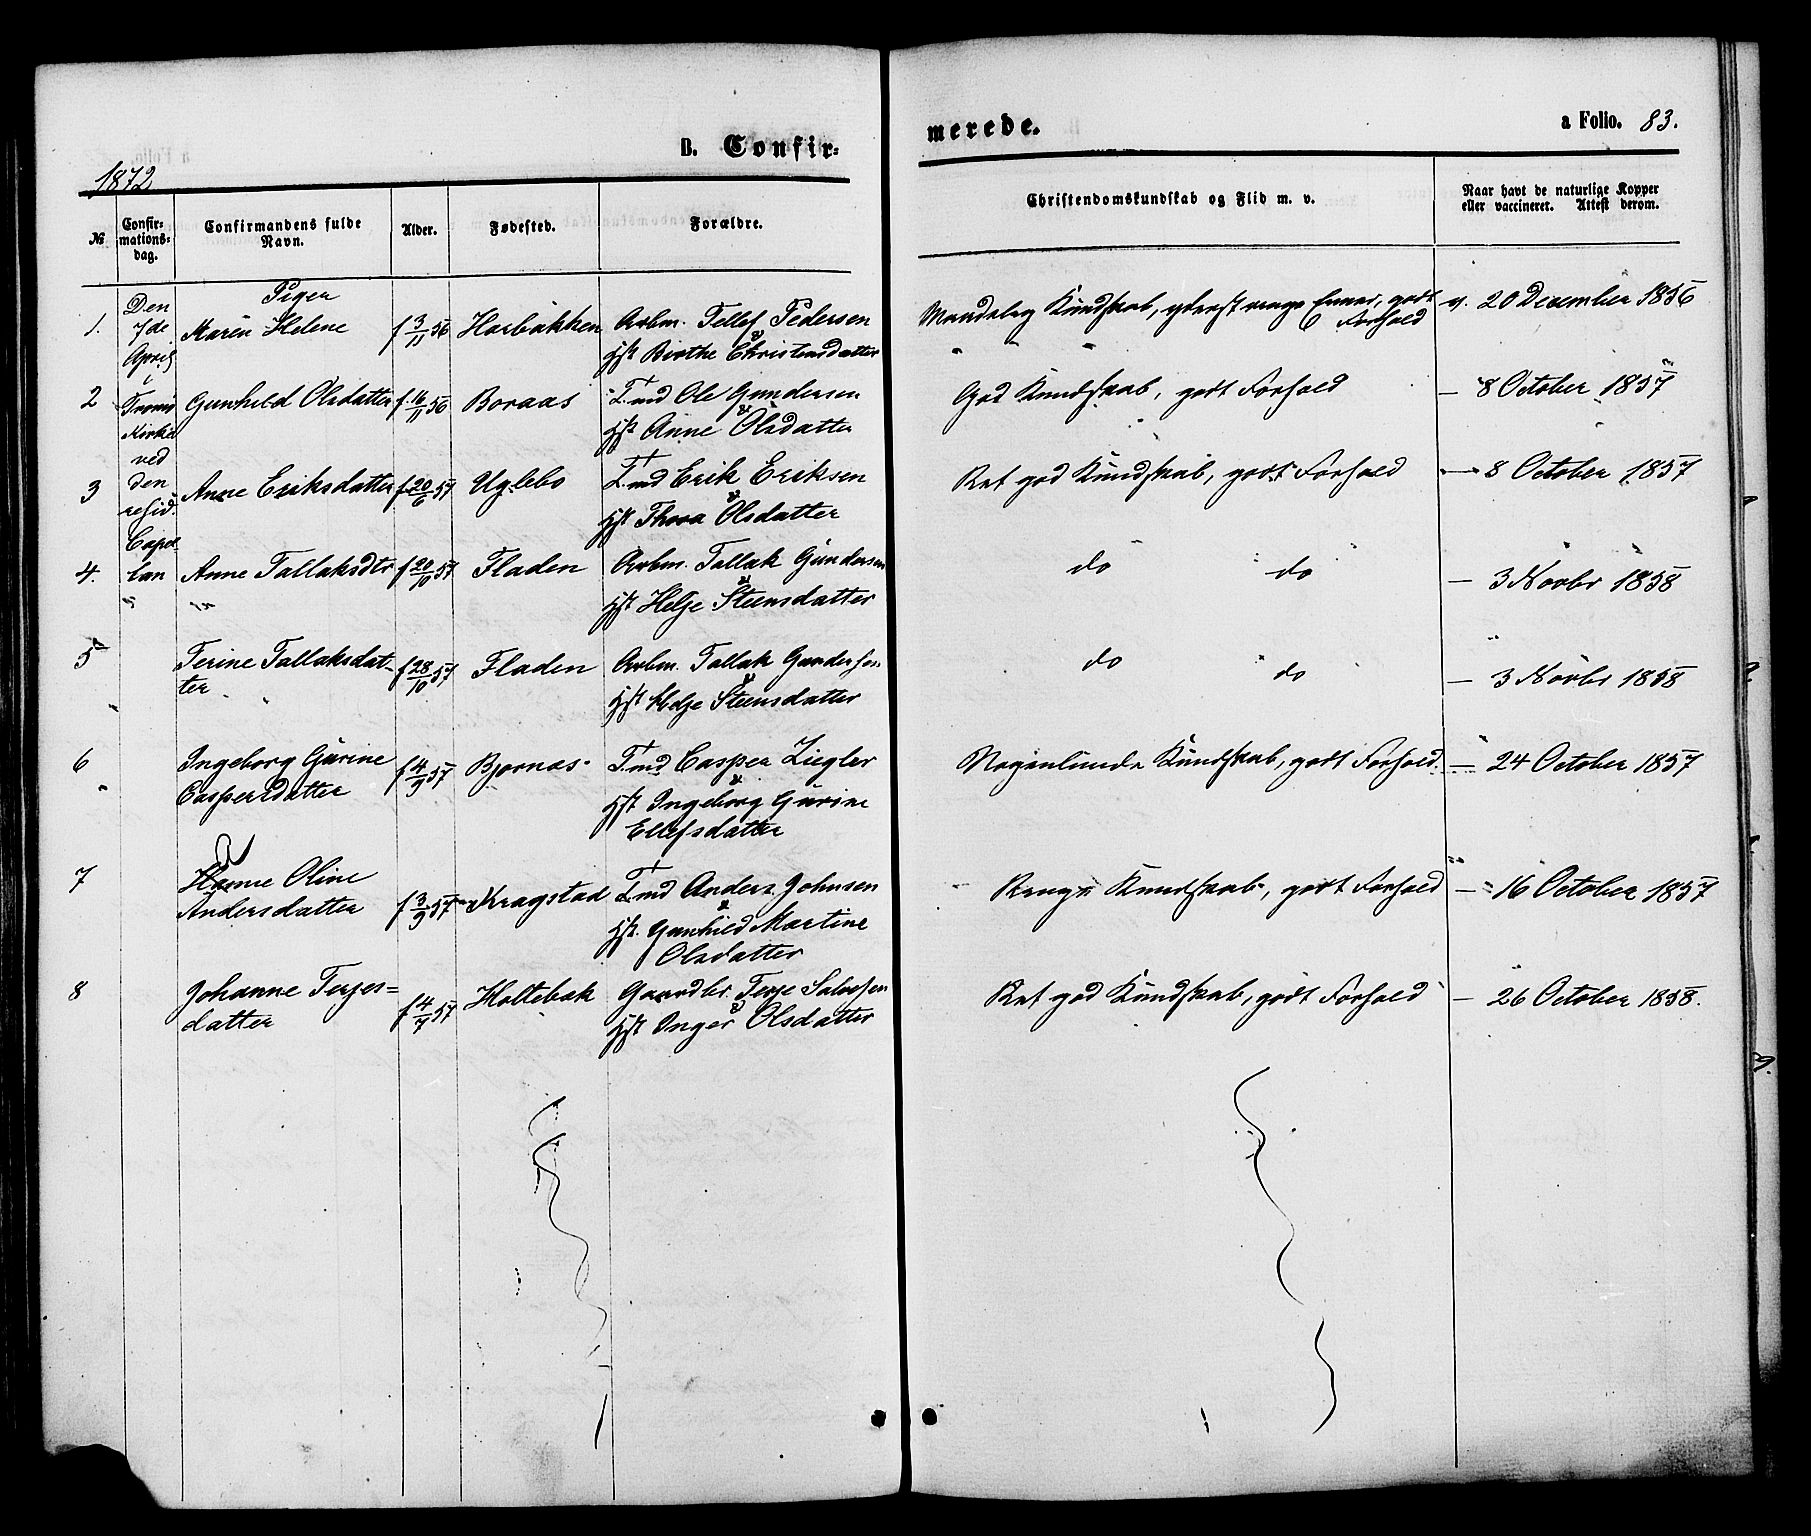 B. Confir=
merede.
a Folio. 83.
1872
№
Confir-
mations-
dag.
Confirmandens fulde
Navn.
Alder.
Fødested.
Forældre.
Christendomskundskab og Flid m. v.
Naar havt de naturlige Kopper
eller vaccineret. Attest derom.
Den
7de
April
i
Tromö
Kirke
ved
den
resid.
Capel
lan
Piger
1. Maren Helene f 3/11 56 Harbakken Arbm. Tellef Pedersen
&
Hst Birthe Christensdatter
Maadelig Kundskab, yderst ringe Evner, godt
Forhold
v. 20 December 1856
2 Gunhild Olsdatter f. 16/11 56 Boraas T.md Ole Gundersen
&
Hst Anne Olsdatter
God Kundskab, godt Forhold
— 8 October 1857
3 Anne Eriksdatter f 20/6 57 Uglebo T.md Erik Eriksen
&
Hst Thora Olsdatter
Ret god Kundskab, godt Forhold
— 8 October 1857
4. Anne Tallaksdtr f 20/10 57 Fladen Arbm. Tallak Gundersen
&
Hst Helje Steensdatter
do do
— 3 Novbr 1858
5 Terine Tallaksdat-
ter
f 28/10 57 Fladen Arbm. Tallak Gundersen
&
Hst Helje Steensdatter
do do
— 3 Novbr 1858
6 Ingeborg Gurine
Caspersdatter
f 4/9 57 Bjornæs T.md Casper Ziegler
&
Hst Ingeborg Gurine
Ellefsdatter
Nogenlunde Kundskab, godt Forhold.
— 24 October 1857
7 Hanne Oline
Andersdatter
f 3/9 57 Kragstad T.md Anders Johnsen
&
Hst. Gunhild Martine
Olsdatter
Ringe Kundskab, godt Forhold
— 16 October 1857
8 Johanne Terjes=
datter
f 4/7 57 Holtebæk Gaardbr. Terje Salvesen
&
Hst Inger Olsdatter
Ret god Kundskab, godt Forhold
— 26 October 1858.